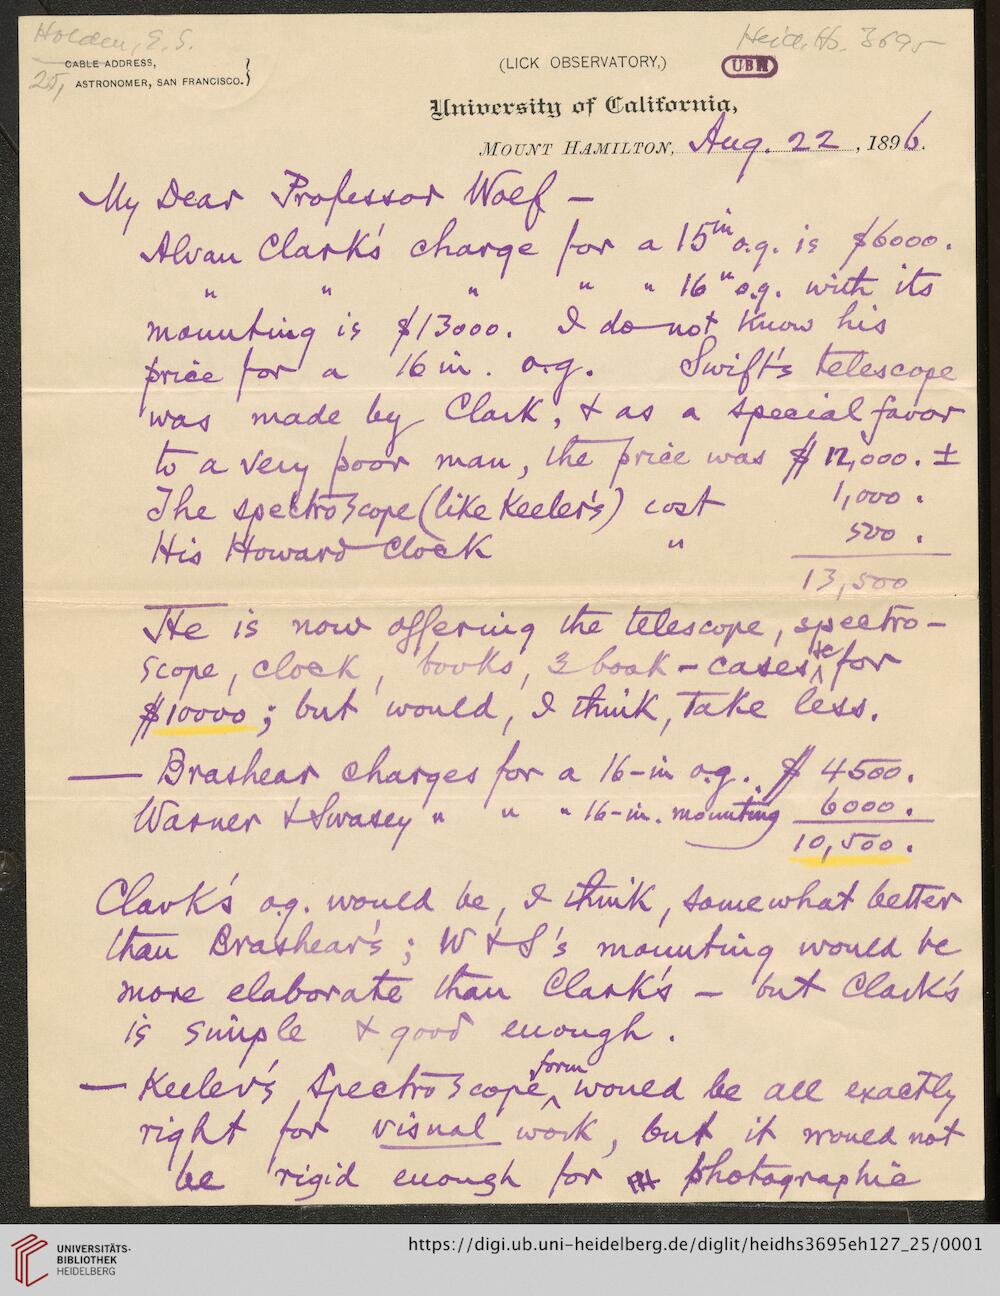 Holden, E. S.
25,
Heid. Hs. 3695
CABLE ADDRESS,
ASTRONOMER, SAN FRANCISCO.
(LICK OBSERVATORY,)
UBH
University of California,
MOUNT HAMILTON, Aug. 22, 1896.
My Dear Professor Wolf —
Alvan Clark's charge for a 15in o.g. is $6000.
" " " " " 16 " o.g. with its
mounting is $13000. I do not know his
price for a 16 in. o.g. Swift's telescope
was made by Clark, & as a special favor
to a very poor man, the price was $ 12,000. ±
The spectroscope (like Keeler's) cost 1,000.
His Howard Clock " 500.
13,500
He is now offering the telescope, spectro-
scope, clock, books, 3 book-cases &c for
$10000; but would, I think, take less.
— Brashear charges for a 16-in o.g. $ 4500.
Warner & Swasey " " " 16-in. mounting 6000.
10,500.
Clark's o.g. would be, I think, somewhat better
than Brashear's; W & S's mounting would be
more elaborate than Clark's — but Clark's
is simple & good enough.
— Keeler's Spectroscope form would be all exactly
right for visual work, but it would not
be rigid enough for photographic
UNIVERSITÄTS-
BIBLIOTHEK
HEIDELBERG
https://digi.ub.uni-heidelberg.de/diglit/heidhs3695eh127_25/0001